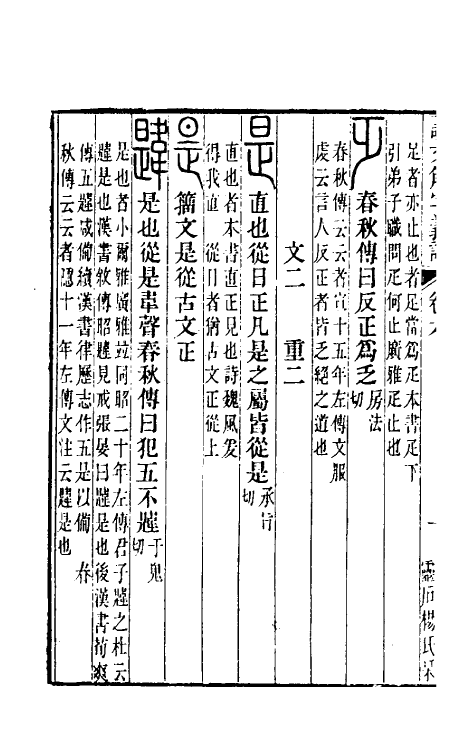 足者亦止也者足當爲疋本書疋下
引弟子職問疋何止廣雅疋止也
春秋傳曰反正爲乏房法切
春秋傳云云者宣十五年左傳文服
虔云言人反正者皆乏絕之道也
文二 重二
是 直也從日正凡是之屬皆從是承旨切
直也者本書直正見也詩魏風爰
得我直 從日者猶古文正從上
籒文是從古文正
韙 是也從是韋聲春秋傳曰犯五不韙于鬼切
是也者小爾雅廣雅竝同昭二十年左傳君子韙之杜云
韙是也漢書敘傳昭韙見戒張晏曰韙是也後漢書荀爽
傳五韙咸備續漢書律歷志作五是以備 春
秋傳云云者隱十一年左傳文注云韙是也